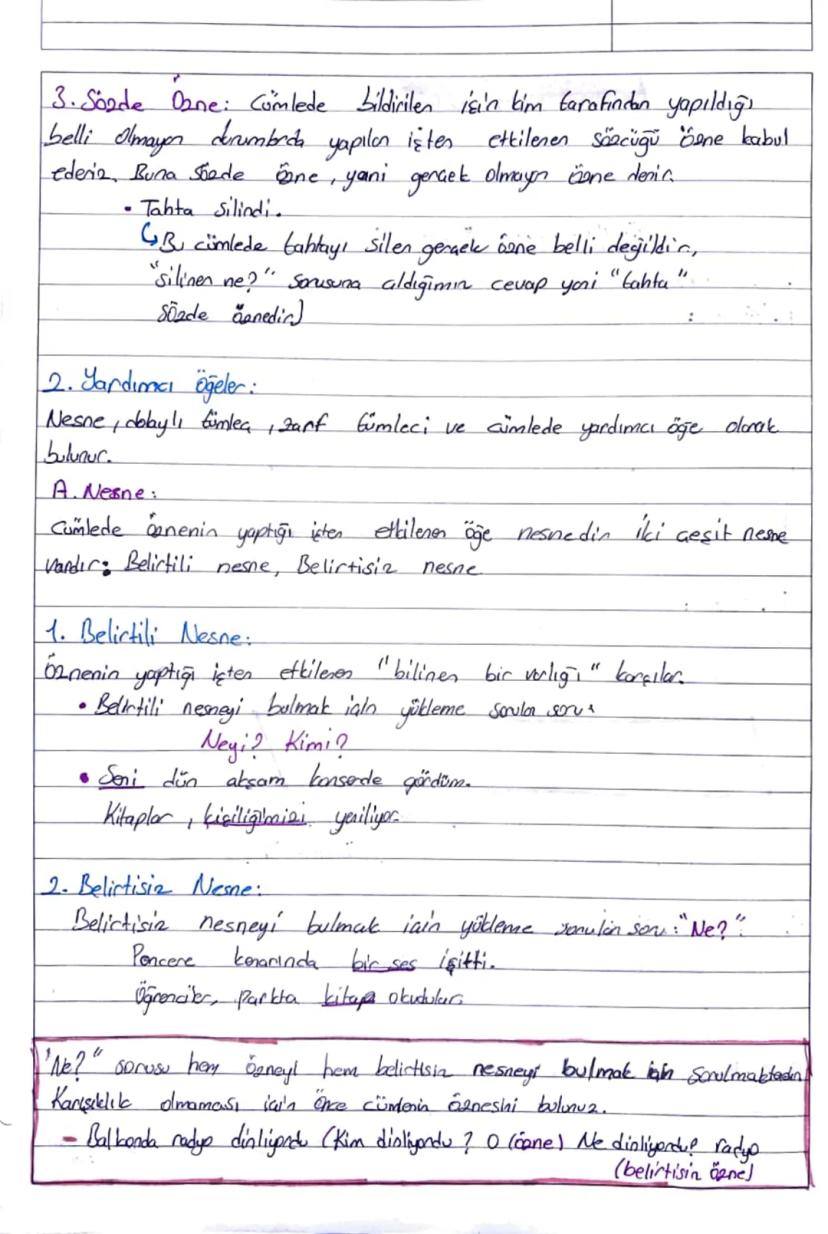 3. Sözde Özne: Cümlede bildirilen işin kim tarafından yapıldığı
belli olmayan durumlarda yapılan işten etkilenen sözcüğü özne kabul
ederiz. Buna sözde özne, yani gerçek olmayan özne denir.
• Tahta silindi.
↳ Bu cümlede tahtayı silen gerçek özne belli değildir,
"silinen ne?" sorusuna aldığımız cevap yani "tahta"
sözde öznedir)
2. Yardımcı Öğeler:
Nesne, dolaylı tümleç, zarf tümleci ve cümlede yardımcı öğe olarak
bulunur.
A. Nesne:
Cümlede öznenin yaptığı işten etkilenen öğe nesnedir iki çeşit nesne
vardır: Belirtili nesne, Belirtisiz nesne
1. Belirtili Nesne:
Öznenin yaptığı işten etkilenen "bilinen bir varlığı" karşılar.
• Belirtili nesneyi bulmak için yükleme sorulan soru:
Neyi? Kimi?
• Seni dün akşam konserde gördüm.
Kitaplar, kişiliğimizi yeniliyor.
2. Belirtisiz Nesne:
Belirtisiz nesneyi bulmak için yükleme sorulan soru: "Ne?"
Pencere kenarında bir ses işitti.
Öğrenciler, parkta kitap okudular.
"Ne?" sorusu hem özneyi hem belirtisiz nesneyi bulmak için sorulmaktadır.
Karışıklık olmaması için önce cümlenin öznesini buluruz.
- Balkonda radyo dinliyordu (Kim dinliyordu? O (özne) Ne dinliyordu? radyo
(belirtisiz özne)